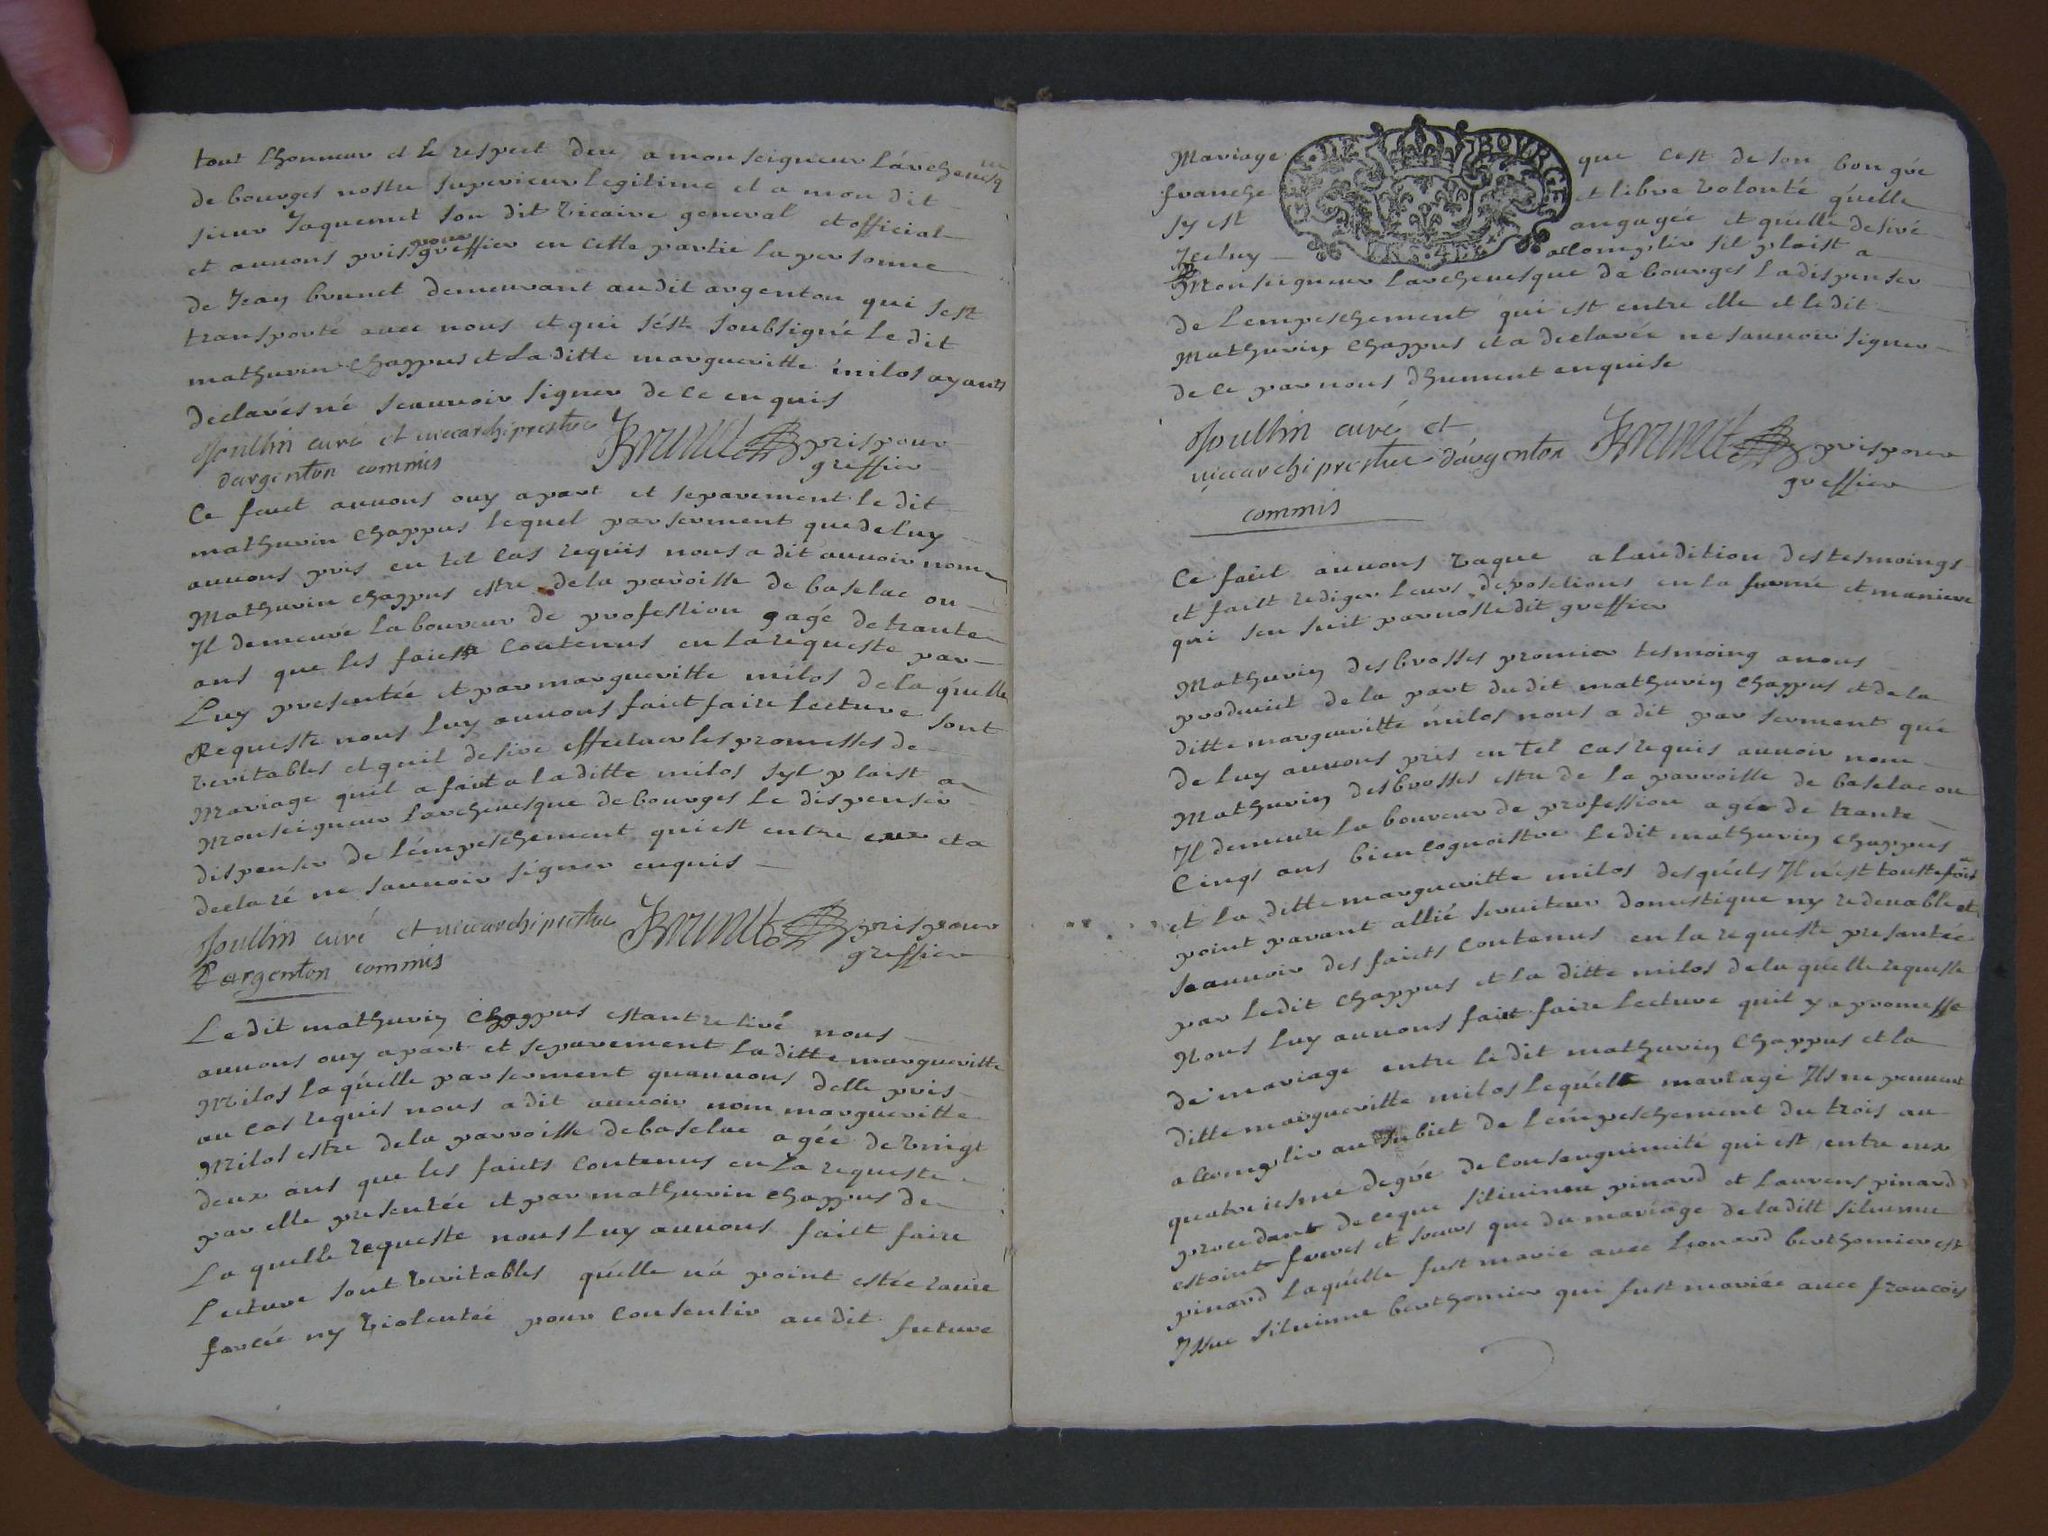 tout lhonneur et le respect deu a monseigneur larchevesq
de bourges nostre superieur legitime et a mon dit
sieur Jaquemet son dit vicaire general et official
et auuons pris pour greffier en cette partie la personne
de Jean brunet demeurant audit argenton qui sest
transporté auec nous et qui sést soubsigné le dit
mathurin chappus et la ditte margueritte milos ayants
declarés né scauuoir signer de ce enquis
Joullin curé et vicearchiprestre Brunet pris pour
dargenton commis greffier
Ce faict auuons ouy apart et separement le dit
mathurin chappus lequel par serment que de luy
auuons pris en tel cas requis nous a dit auuoir nom
Mathurin chappus estre de la paroisse de baselac ou
Il demeure laboureur de profession agé de trante
ans que les faicts contenus en la requeste par
Luy presentée et par margueritte milos de la quelle
Requeste nous luy auuons faict faire Lecture sont
veritables et quil desire effectuer les promesses de
mariage quil a fait a la ditte milos syl plaist a
Monseigneur larchevesque de bourges le dispenser
dispenser de lémpeschement qui est entre eux et a
declaré ne sauuoir signer enquis
Joullin curé et vicearchiprestre Brunet pris pour
d'argenton commis greffier
Le dit mathurin chappus estant retiré nous
auuons ouy apart et separement la ditte margueritte
Milos laquélle par serment quauuons delle pris
au cas requis nous a dit auuoir nom margueritte
Milos estre de la parroisse de baselac agée de vingt
deux ans que les faicts contenus en la requeste
par elle presentée et par mathurin chappus de
La quelle requeste nous luy auuons faict faire
Lecture sont veritables quélle ná point estée rauie
forcée ny violentée pour consentir au dit future
Mariage que cest de son bon gré
franche et libre volonté quélle
sy est angagée et quélle desiré
Jceluy accomplir sil plaist a
GE. DE BOURGES
Monseigneur larchevesque de bourges la dispenser
de lempeschement qui est entre elle et le dit
Mathurin chappus et a declarée ne sauuoir signer
de ce par nous dhument enquise
Joullin curé et
vicearchiprestre dárgenton Brunet pris pour
commis greffier
Ce faict auuons vaqué a laudition des tesmoings
et faict rediger leurs depositions en la forme et maniere
qui sen suit par nostre dit greffier
Mathurin desbrosses promier tesmoing a nous
produict de la part du dit mathurin chappus et de la
ditte margueritte milos nous a dit par serment que
de luy auuons pris en tel cas requis auuoir nom
Mathurin desbrosses estre de la parroisse de baselac ou
Il demeure laboureur de profession agée de trante
cinqs ans bien cognoistre le dit mathurin chappus
et la ditte margueritte milos desquéls Il nést toutefois
point parant allié seruiteur domestique ny redeuable et
scauuoir des faicts contenus en la requeste presantée
par le dit chappus et la ditte milos de la quelle requeste
Nous luy auuons faict faire lecture quil y a promesse
de mariage entre le dit mathurin chappus et la
ditte margueritte milos lequél mariage Ils ne peuuent
accomplir au subiet de lémpeschement du trois au
quatriesme degré de consanguinité qui est entre eux
procedant de ce que siluinne pinard et Laurens pinard
estoint freres et soeurs que du mariage de la ditt siluinne
pinard laquélle fust marie auec Leonard berthomier est
Issue siluinne berthomier qui fust mariée auec francois